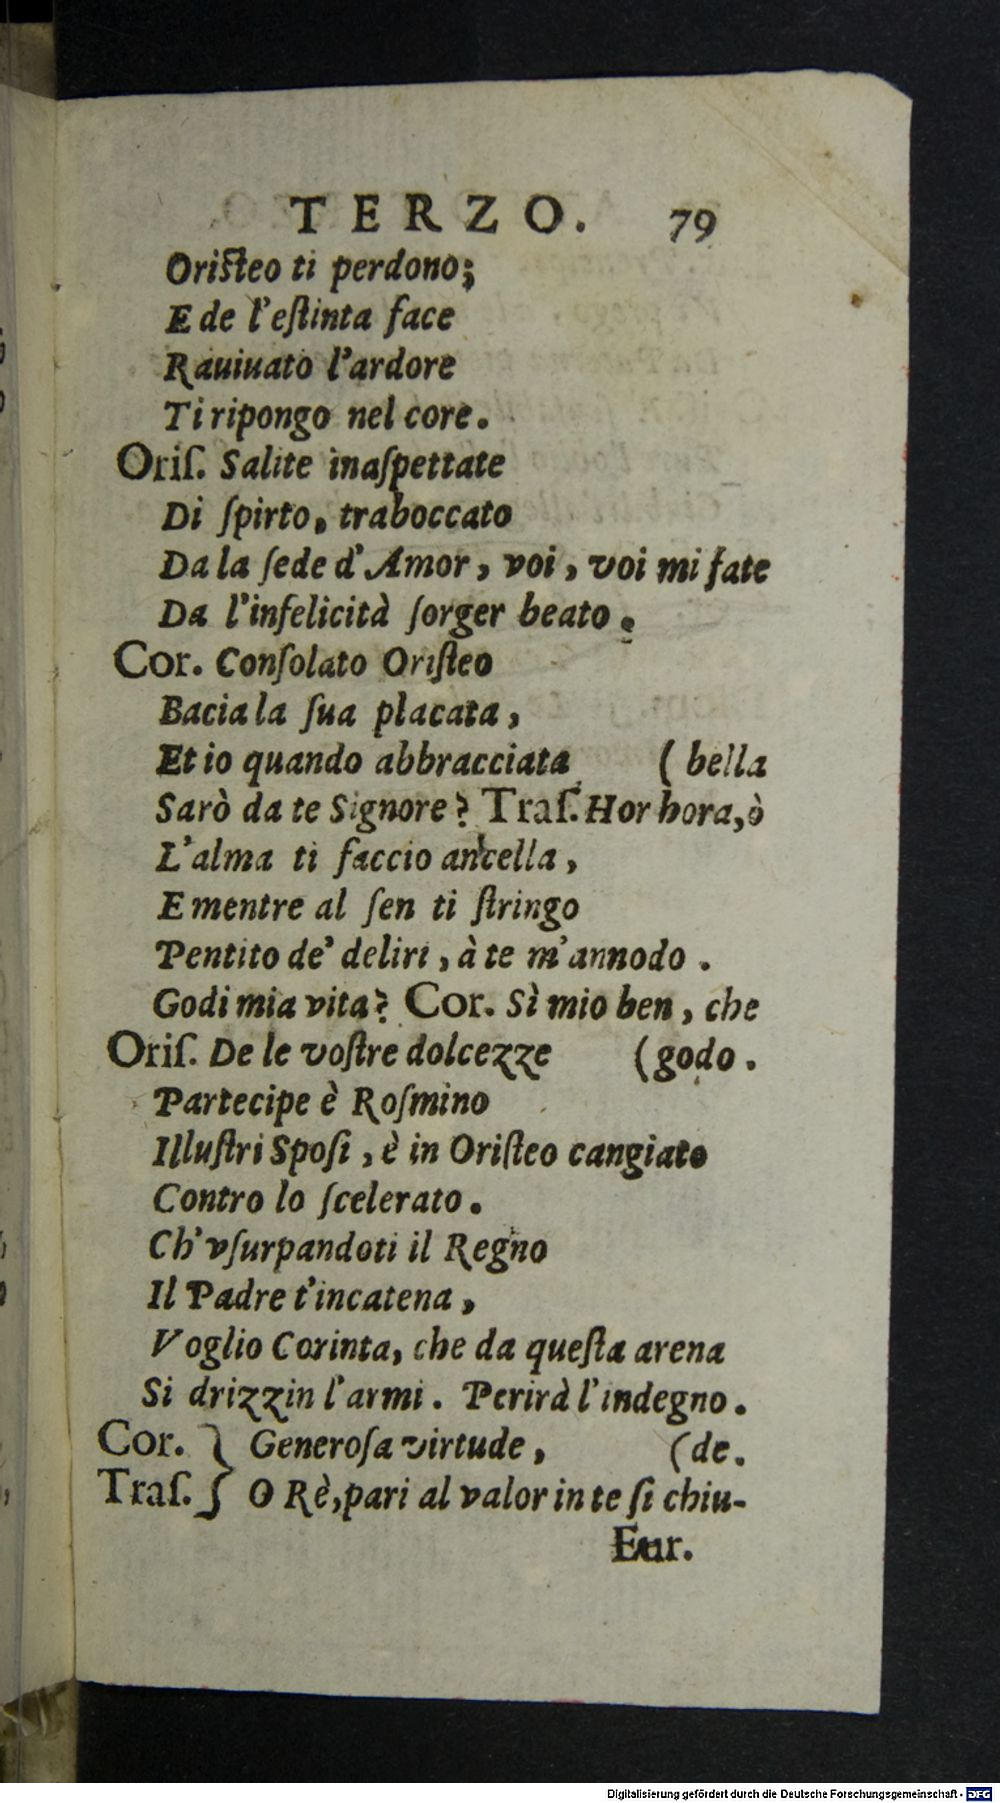 TERZO. 79
Oriſteo ti perdono;
E de l'eſtinta face
Rauiuato l'ardore
Ti ripongo nel core.
Oriſ. Salite inaſpettate
Di ſpirto, traboccato
Da la ſede d'Amor, voi, voi mi fate
Da l'infelicità ſorger beato.
Cor. Conſolato Oriſteo
Bacia la ſua placata,
Et io quando abbracciata (bella
Sarò da te Signore? Traſ. Hor hora, ò
L'alma ti faccio ancella,
E mentre al ſen ti ſtringo
Pentito de' deliri, à te m'annodo.
Godi mia vita? Cor. Sì mio ben, che
Oriſ. De le voſtre dolcezze (godo.
Partecipe è Roſmino
Illuſtri Spoſi, è in Oriſteo cangiato
Contro lo ſcelerato.
Ch'vſurpandoti il Regno
Il Padre t'incatena,
Voglio Corinta, che da queſta arena
Si drizzin l'armi. Perirà l'indegno.
Cor. } Generoſa virtude, (de.
Traſ. } O Rè, pari al valor in te ſi chiu-
Eur.
Digitalisierung gefördert durch die Deutsche Forschungsgemeinschaft - DFG